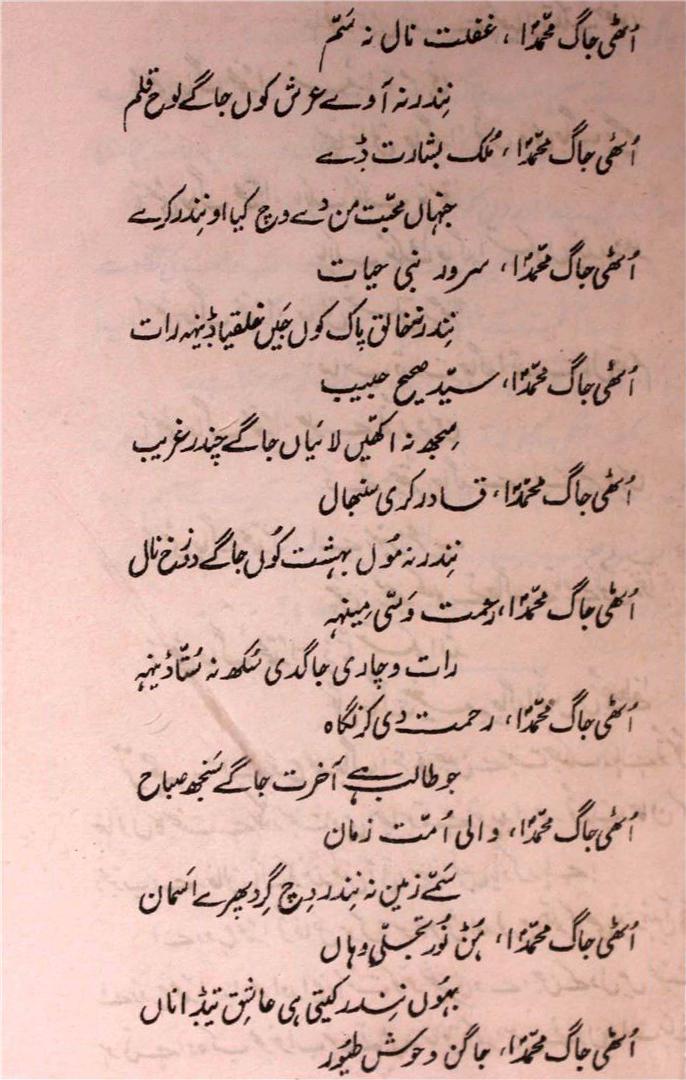 اُٹھی جاگ محمّدؐا، غفلت نال نہ سَمّ
نِندر نہ آوے عرش کوں جاگے لوح قلم
اُٹھی جاگ محمّدؐا، مُلک بشارت ڈے
جنہاں محبّت من دے وچ کیا او نِندر کرے
اُٹھی جاگ محمّدؐا، سرور نبی حیات
نِندر نہ خالق پاک کوں جَیں خلقیا ڈینہہ رات
اُٹھی جاگ محمّدؐا، سیّد صحیح حبیب
سِجھ نہ اکھّیں لائیاں جاگے چندر غریب
اُٹھی جاگ محمّدؐا، قادر کری سنبھال
نِندر نہ مُول بہشت کُوں جاگے دوزخ نال
اُٹھی جاگ محمّدؐا، رحمت وَسّی مِینہہ
رات وچاری جاگدی سُکھ نہ سُتّا ڈینہہ
اُٹھی جاگ محمّدؐا، رحمت دی کر نگاہ
جو طالب ہے آخرت جاگے سَنجھ صباح
اُٹھی جاگ محمّدؐا، والی اُمّت زمان
سَمّے زمین نہ نِندر وِچ گِرد پھرے اَسمان
اُٹھی جاگ محمّدؐا، ہُݨ نُور تجلّی وہاں
بہُوں نِندر کیتی ہی عاشِق تیڈا ناں
اُٹھی جاگ محمّدؐا، جاگن وحوش طیُور